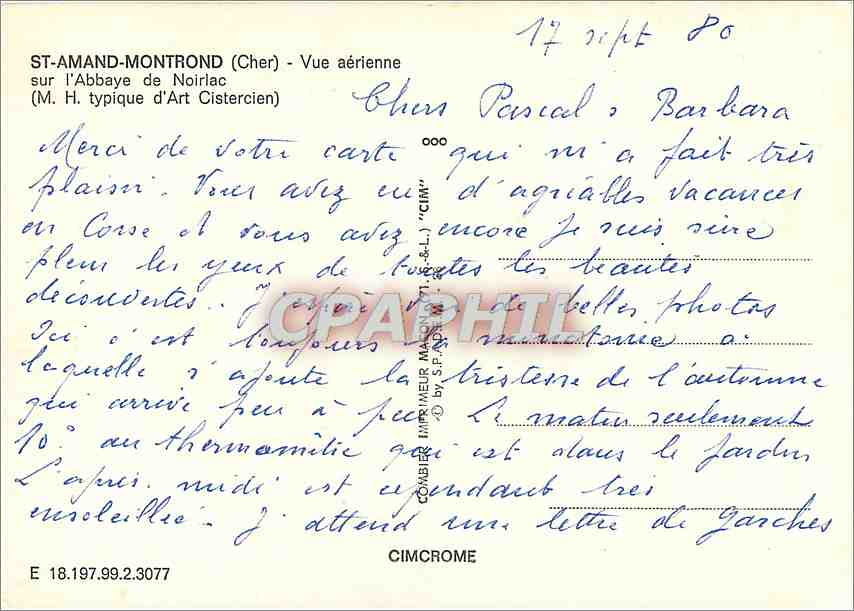 17 sept 80
ST-AMAND-MONTROND (Cher) - Vue aérienne
sur l'Abbaye de Noirlac
(M. H. typique d'Art Cistercien)
Chers Pascal & Barbara
Merci de votre carte qui m'a fait très
plaisir. Vous avez eu d'agréables vacances
en Corse et vous avez encore je suis sûre
plein les yeux de toutes les beautés
découvertes. J'espère voir de belles photos
Ici c'est toujours la monotonie à
laquelle s'ajoute la tristesse de l'automne
qui arrive peu à peu. Le matin seulement
10° au thermomètre qui est dans le jardin
L'après-midi est cependant très
ensoleillée. J'attend une lettre de Garches
COMBIER IMPRIMEUR MACON (71.S.-&-L.) "CIM"
© by S.P.A.D.E.M.
CPAPHIL
CIMCROME
E 18.197.99.2.3077